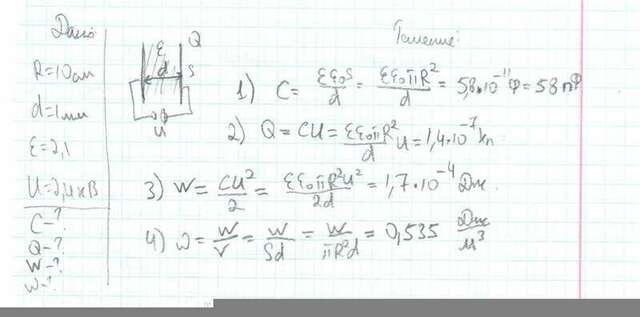 Дано:
R=10см
d=1мм
ε=2,1
U=2,4кВ
C-?
Q-?
W-?
w-?
ε Q
d S
U
Решение:
1) C = εε₀S/d = εε₀πR²/d = 5,8·10⁻¹¹Ф = 58 пФ
2) Q = CU = εε₀πR²/d U = 1,4·10⁻⁷ Кл
3) W = CU²/2 = εε₀πR²U²/2d = 1,7·10⁻⁴ Дж.
4) w = W/V = W/Sd = W/πR²d = 0,535 Дж/м³